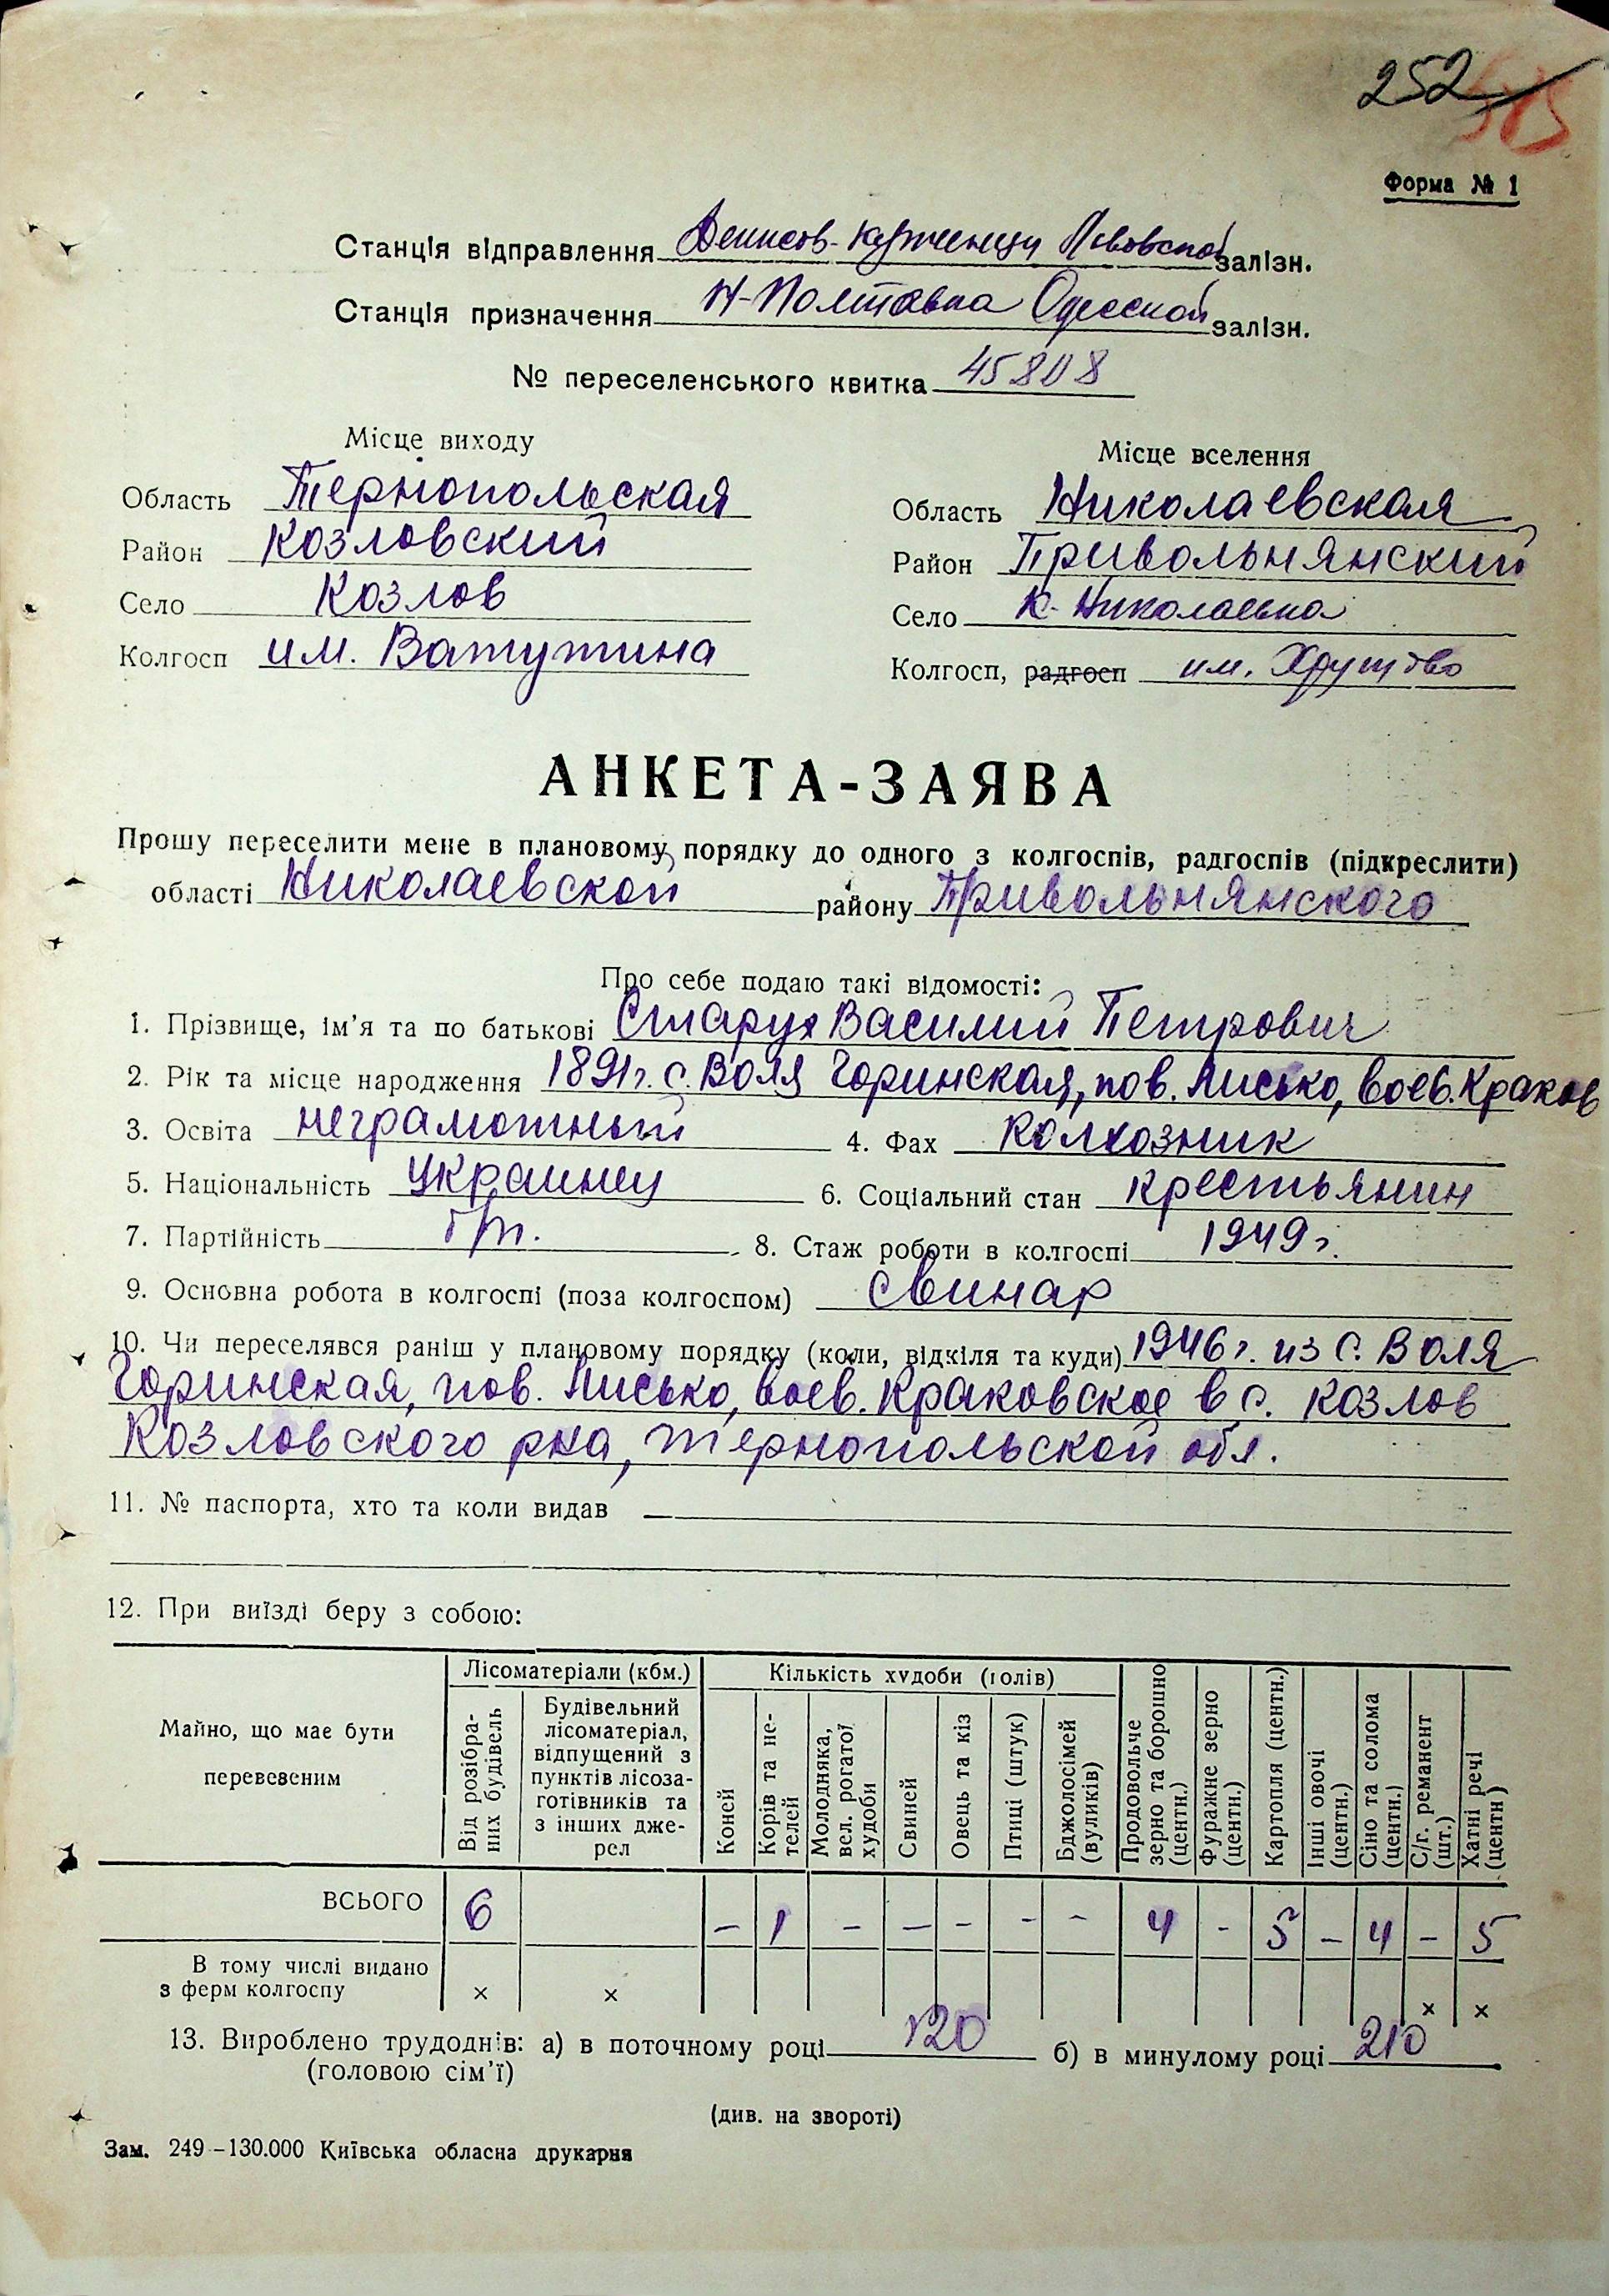 252
585
Форма № 1
Станція відправлення Денисов-Купченцы Львовской залізн.
Станція призначення Н-Полтавка Одесской залізн.
№ переселенського квитка 45808
Місце виходу
Місце вселення
Область Тернопольская
Область Николаевская
Район Козловский
Район Привольнянский
Село Козлов
Село К-Николаевка
Колгосп им. Ватутина
Колгосп, радгосп им.
АНКЕТА-ЗАЯВА
Прошу переселити мене в плановому порядку до одного з колгоспів, радгоспів (підкреслити)
області Николаевской району Привольнянского
Про себе подаю такі відомості:
1. Прізвище, ім'я та по батькові Старух Василий Петрович
2. Рік та місце народження 1891г. с. Воля Горинская, пов. Лисько, воев. Краков
3. Освіта неграмотный 4. Фах колхозник
5. Національність украинец 6. Соціальний стан крестьянин
7. Партійність б/п. 8. Стаж роботи в колгоспі 1949 г.
9. Основна робота в колгоспі (поза колгоспом) свинар
10. Чи переселявся раніш у плановому порядку (коли, відкіля та куди) 1946 г. из с. Воля
Горинская, пов. Лисько, воев. Краковское в с. Козлов
Козловского р-на, Тернопольской обл.
11. № паспорта, хто та коли видав —
12. При виїзді беру з собою:
Майно, що має бути
перевезеним
Лісоматеріали (кбм.)
Кількість худоби (голів)
Від розібра-
них будівель
Будівельний
лісоматеріал,
відпущений з
пунктів лісоза-
готівників та
з інших дже-
рел
Коней
Корів та не-
телей
Молодняка,
вел. рогатої
худоби
Свиней
Овець та кіз
Птиці (штук)
Бджолосімей
(вуликів)
Продовольче
зерно та борошно
(центн.)
Фуражне зерно
(центн.)
Картопля (центн.)
Інші овочі
(центн.)
Сіно та солома
(центн.)
С/г. реманент
(шт.)
Хатні речі
(центн)
ВСЬОГО 6 – 1 – – – – – 4 – 5 – 4 – 5
В тому числі видано
з ферм колгоспу × × × ×
13. Вироблено трудоднів: а) в поточному році 120 б) в минулому році 210
(головою сім'ї)
(див. на звороті)
Зам. 249–130.000 Київська обласна друкарня